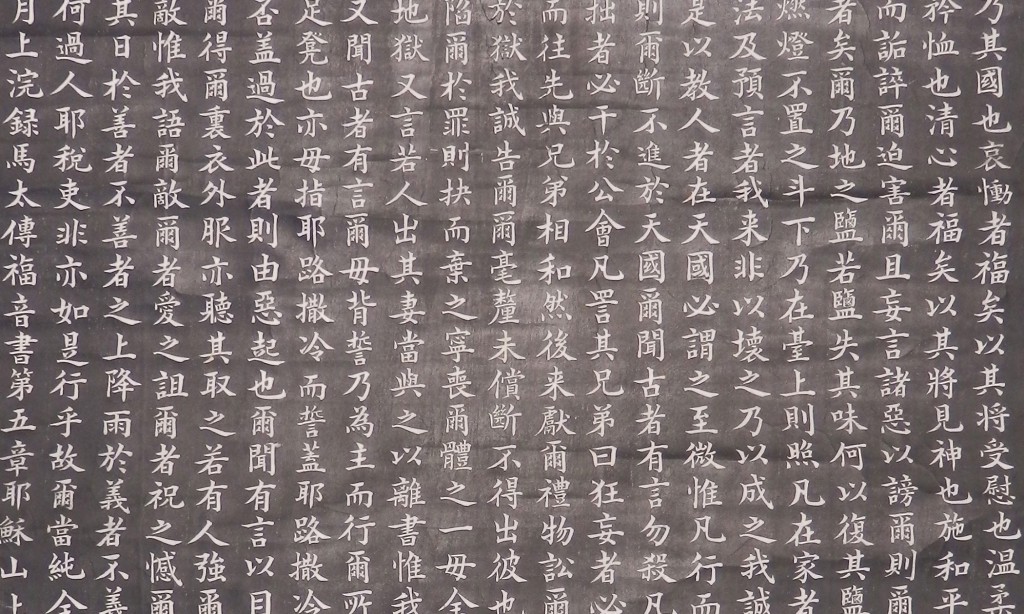 乃其國也哀慟者福矣以其将受慰也温柔
矜恤也清心者福矣以其將見神也施和平
而詬誶爾迫害爾且妄言諸惡以謗爾則爾
者矣爾乃地之鹽若鹽失其味何以復其鹽
燃燈不置之斗下乃在臺上則照凡在家者
法及預言者我来非以壊之乃以成之我誠
是以教人者在天國必謂之至微惟凡行而
則爾斷不進於天國爾聞古者有言勿殺凡
拙者必干於公會凡詈其兄弟曰狂妄者必
而往先與兄弟相和然後来獻爾禮物訟爾
於獄我誠告爾爾毫釐未償斷不得出彼也
陷爾於罪則抉而棄之寧喪爾體之一毋全
地獄又言若人出其妻當與之以離書惟我
又聞古者有言爾毋背誓乃為主而行爾所
足凳也亦毋指耶路撒冷而誓蓋耶路撒冷
否盖過於此者則由惡起也爾聞有言以目
爾得爾裏衣外服亦聽其取之若有人強爾
敵惟我語爾敵爾者愛之詛爾者祝之憾爾
其日於善者不善者之上降雨於義者不義
何過人耶稅吏非亦如是行乎故爾當純全
月上浣録馬太傳福音書第五章耶穌山上